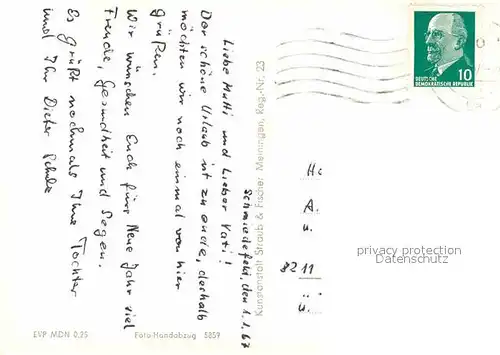 Schmiedefeld, den 1.1.67
Liebe Mutti und Lieber Vati!
Der schöne Urlaub ist zu ende, deshalb
möchten wir noch einmal von hier
grüßen.
Wir wünschen Euch fürs Neue Jahr viel
Freude, Gesundheit und Segen.
Es grüßt nochmals Ihre Tochter
und Ihr Dieter Schulz
Kunstanstalt Straub & Fischer Meiningen, Reg.-Nr. 23
EVP MDN 0,25
Foto-Handabzug 5859
DEUTSCHE
DEMOKRATISCHE REPUBLIK
10
A.
u.
8211
privacy protection
Datenschutz